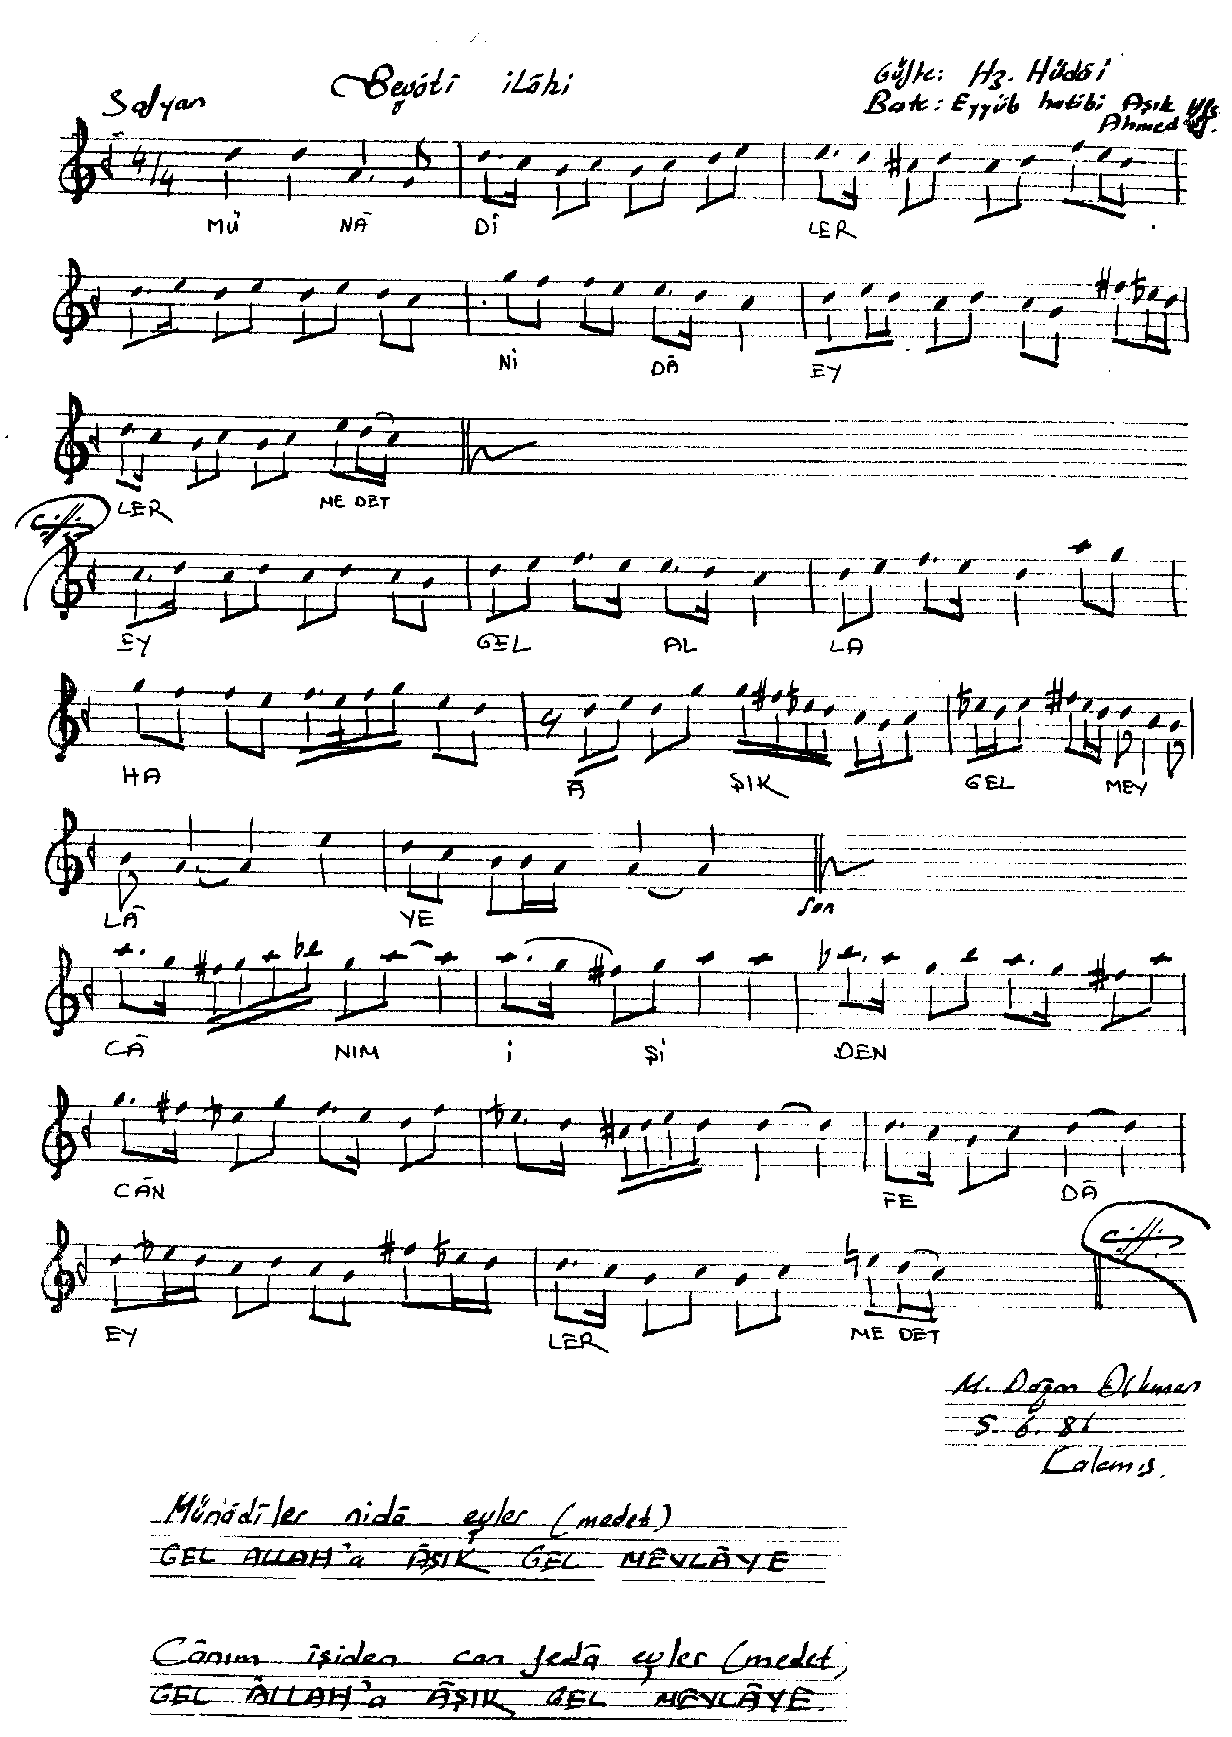 Sofyan Beyâtî ilâhi Güfte: Hz. Hüdâi
Beste: Eyyüb hatibi Aşık
Ahmed
4/4
MÜ NÂ DÎ LER
Nİ DÂ EY
LER ME DET
EY GEL AL LA
HA Â ŞIK GEL MEY
LÂ YE Son
CÂ NIM İ Şİ DEN
CÂN FE DÂ
EY LER ME DET
M. Doğan
5.6.81
Kalamış.
Münâdîler nidâ eyler (medet)
GEL ALLAH'a ÂŞIK GEL MEVLÂYE
Cânım îşiden can fedâ eyler (medet)
GEL ÂLLAH'a ÂŞIK GEL MEVLÂYE.